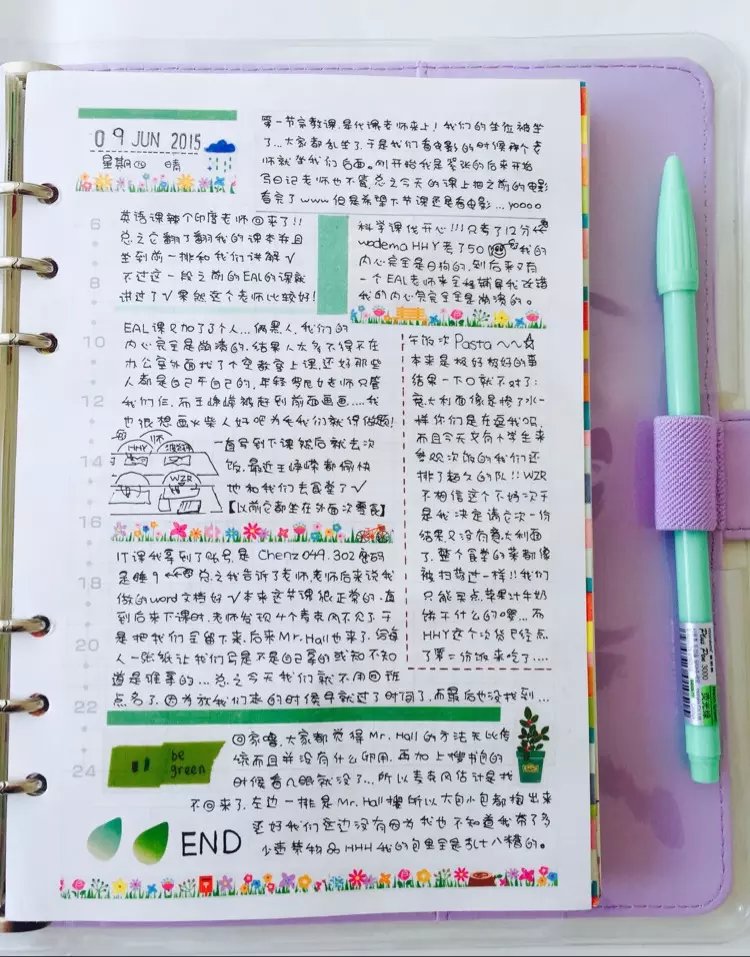 09 JUN 2015
星期四 晴
第一节宗教课,是代课老师来上!我们的坐位被坐
了...大家都乱坐了,于是我们看电影的时候那个老
师就坐我们后面。刚开始我是紧张的后来开始
写日记老师也不管,总之今天的课上把之前的电影
看完了www但是希望下节课还是看电影...yoooo
6
8
10
12
14
16
18
20
22
24
英语课辣个印度老师回来了!!
总之它翻了翻我的课本并且
坐到前一排和我们讲解√
不过这一段之前的EAL的课就
讲过了√果然这个老师比较好!
科学课伐开心!!!只考了12分
wodema HHY考了50 我的
内心完全是日狗的,到后来又有
一个EAL老师来全程辅导我改错
我的内心完完全全是崩溃的。
EAL课只no了3个人...俩黑人,我们的
内心完全是崩溃的,结果人太多不得不在
办公室外面找了个空教室上课,还好那些
人都是自己干自己的,年轻罗尼女老师只管
我们仨,而王峥嵘被赶到前面画画....我
也很想画火柴人好吧为毛我们就得做题!
HHY
师
WZR
一直写到下课然后就去次
饭,最近王峥嵘都愉快
地和我们去食堂了√
【以前它都坐在外面次零食】
午饭次Pasta~~☆
本来是极好极好的事
结果一下口就不对了:
意大利面像是掺了水一
样你们是在逗我吗,
而且今天又有小学生来
参观次饭的我们还
排了超久的队!!WZR
不相信这个不好次于
是我决定请它次一份
结果又没有意大利面
了,整个食堂的菜都像
被扫荡过一样!!我们
只能买点苹果汁牛奶
饼干什么的嘤...而
HHY这个次货已经点
了第二份饭来吃了....
IT课我拿到了账号是 Chenz049.302 密码
是睡9 总之我告诉了老师,老师后来说我
做的word文档好√本来这节课很正常的,直
到后来下课时,老师发现4个麦克风不见了于
是把我们全留下来,后来Mr.Hall也来了,给每
人一张纸让我们写是不是自己拿的或知不知
道是谁拿的...总之今天我们就不用回班
点名了,因为放我们走的时候早就过了时间了,而最后也没找到...
be
green
回家噜,大家都觉得Mr. Hall的方法太比传
统而且并没有什么卵用,再加上搜书包的
时候看八眼就没了...所以麦克风估计是找
不回来了,左边一排是Mr.Hall搜所以大包小包都掏出来
还好我们这边没有因为我也不知道我带了多
少违禁物品HHH我的包里全是乱七八糟的。
END
Plus Pen 3000